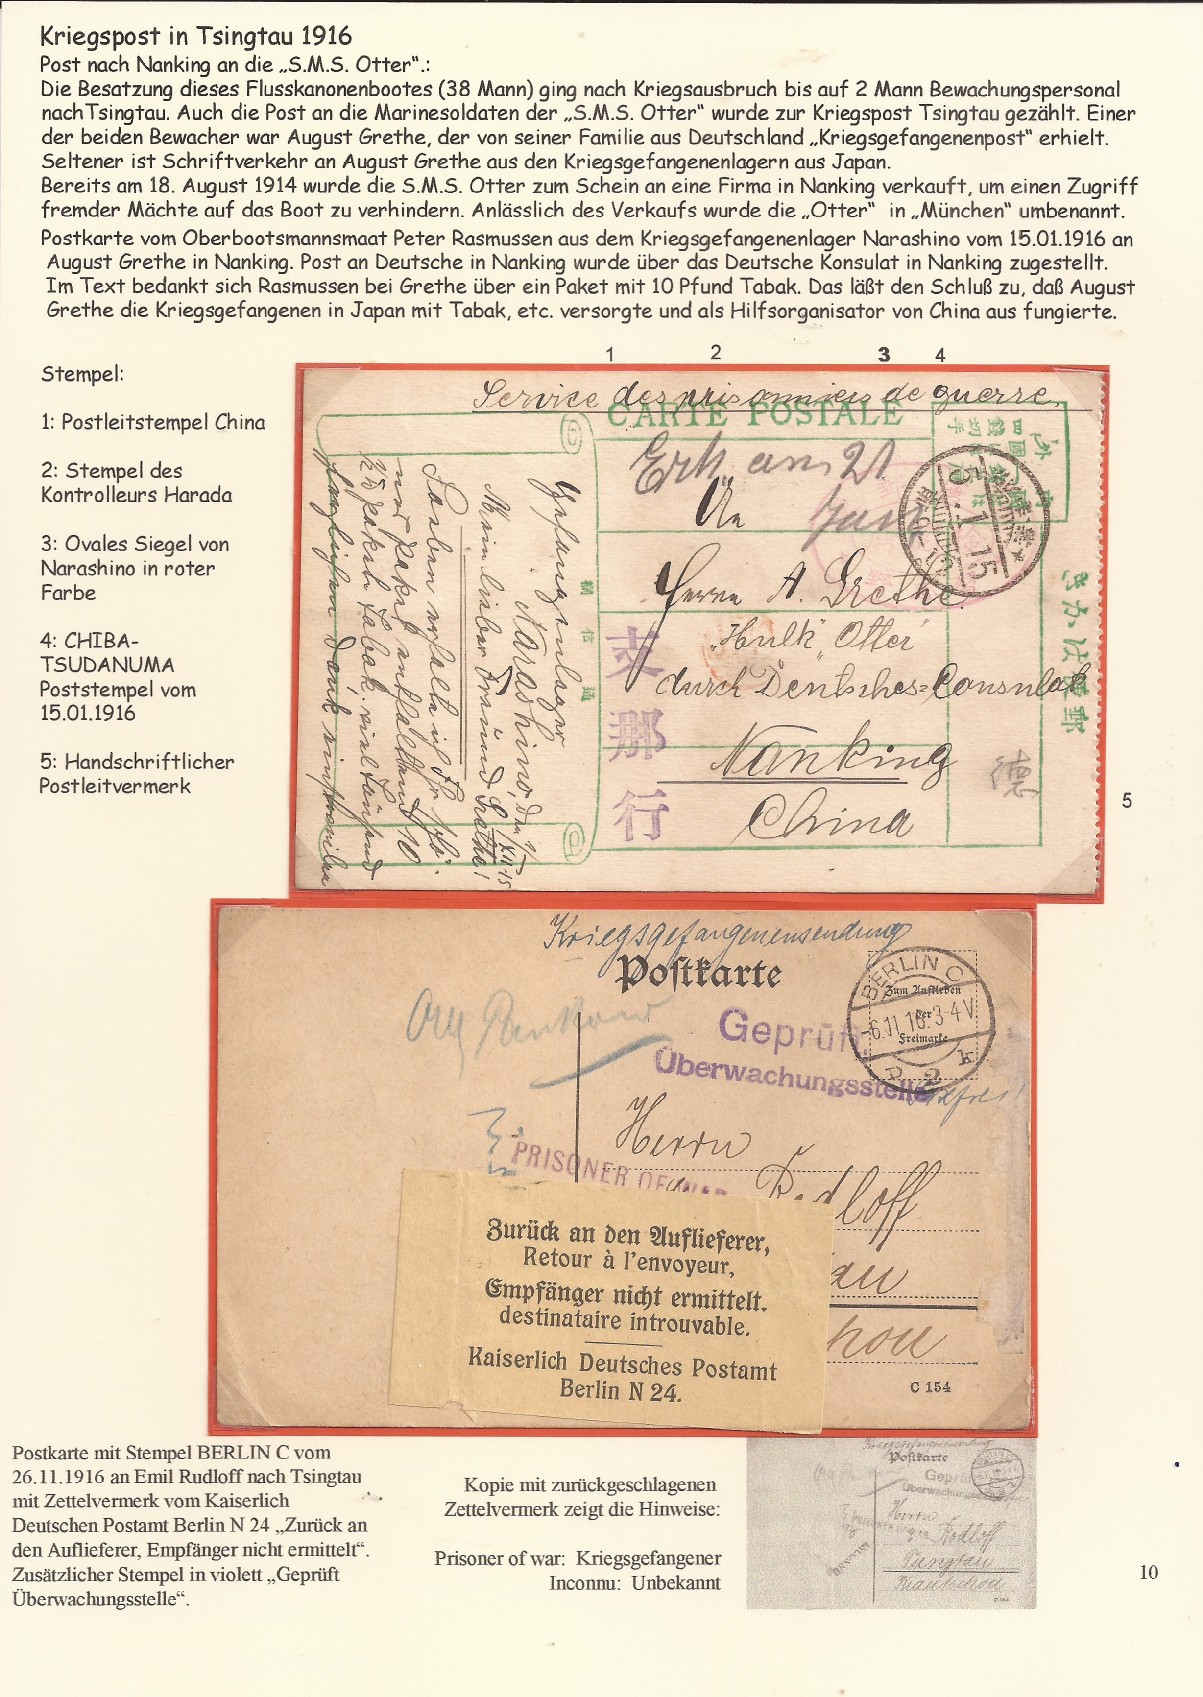 Kriegspost in Tsingtau 1916
Post nach Nanking an die „S.M.S. Otter“.:
Die Besatzung dieses Flusskanonenbootes (38 Mann) ging nach Kriegsausbruch bis auf 2 Mann Bewachungspersonal
nachTsingtau. Auch die Post an die Marinesoldaten der „S.M.S. Otter“ wurde zur Kriegspost Tsingtau gezählt. Einer
der beiden Bewacher war August Grethe, der von seiner Familie aus Deutschland „Kriegsgefangenenpost“ erhielt.
Seltener ist Schriftverkehr an August Grethe aus den Kriegsgefangenenlagern aus Japan.
Bereits am 18. August 1914 wurde die S.M.S. Otter zum Schein an eine Firma in Nanking verkauft, um einen Zugriff
fremder Mächte auf das Boot zu verhindern. Anlässlich des Verkaufs wurde die „Otter“ in „München“ umbenannt.
Postkarte vom Oberbootsmannsmaat Peter Rasmussen aus dem Kriegsgefangenenlager Narashino vom 15.01.1916 an
August Grethe in Nanking. Post an Deutsche in Nanking wurde über das Deutsche Konsulat in Nanking zugestellt.
Im Text bedankt sich Rasmussen bei Grethe über ein Paket mit 10 Pfund Tabak. Das läßt den Schluß zu, daß August
Grethe die Kriegsgefangenen in Japan mit Tabak, etc. versorgte und als Hilfsorganisator von China aus fungierte.
1 2 3 4
Stempel:
1: Postleitstempel China
2: Stempel des
Kontrolleurs Harada
3: Ovales Siegel von
Narashino in roter
Farbe
4: CHIBA-
TSUDANUMA
Poststempel vom
15.01.1916
5: Handschriftlicher
Postleitvermerk
5
Service des prisonniers de guerre
CARTE POSTALE
Erh. am 21
An
Herrn A. Grethe
„Hulk“ Otter
durch Deutsches-Consulat
Nanking
China
5.1.15
支那行
Gefangenenlager
Narashino, den
Mein lieber Freund Grethe!
Soeben erhalte ich Ihr
10
Kriegsgefangenensendung
Postkarte
BERLIN C
Zum Aufkleben
der
Freimarke
-6.11.16.3-4V
P 2 k
Geprüft
Überwachungsstelle
Herrn
PRISONER OF WAR
Rudloff
Zurück an den Auflieferer,
Retour à l'envoyeur,
Empfänger nicht ermittelt.
destinataire introuvable.
Kaiserlich Deutsches Postamt
Berlin N 24.
C 154
Postkarte mit Stempel BERLIN C vom
26.11.1916 an Emil Rudloff nach Tsingtau
mit Zettelvermerk vom Kaiserlich
Deutschen Postamt Berlin N 24 „Zurück an
den Auflieferer, Empfänger nicht ermittelt“.
Zusätzlicher Stempel in violett „Geprüft
Überwachungsstelle“.
Kopie mit zurückgeschlagenen
Zettelvermerk zeigt die Hinweise:
Prisoner of war: Kriegsgefangener
Inconnu: Unbekannt
Kriegsgefangenensendung
Postkarte
Geprüft
Überwachungsstelle
Herrn
Rudloff
Tsingtau
Kiautschou
10